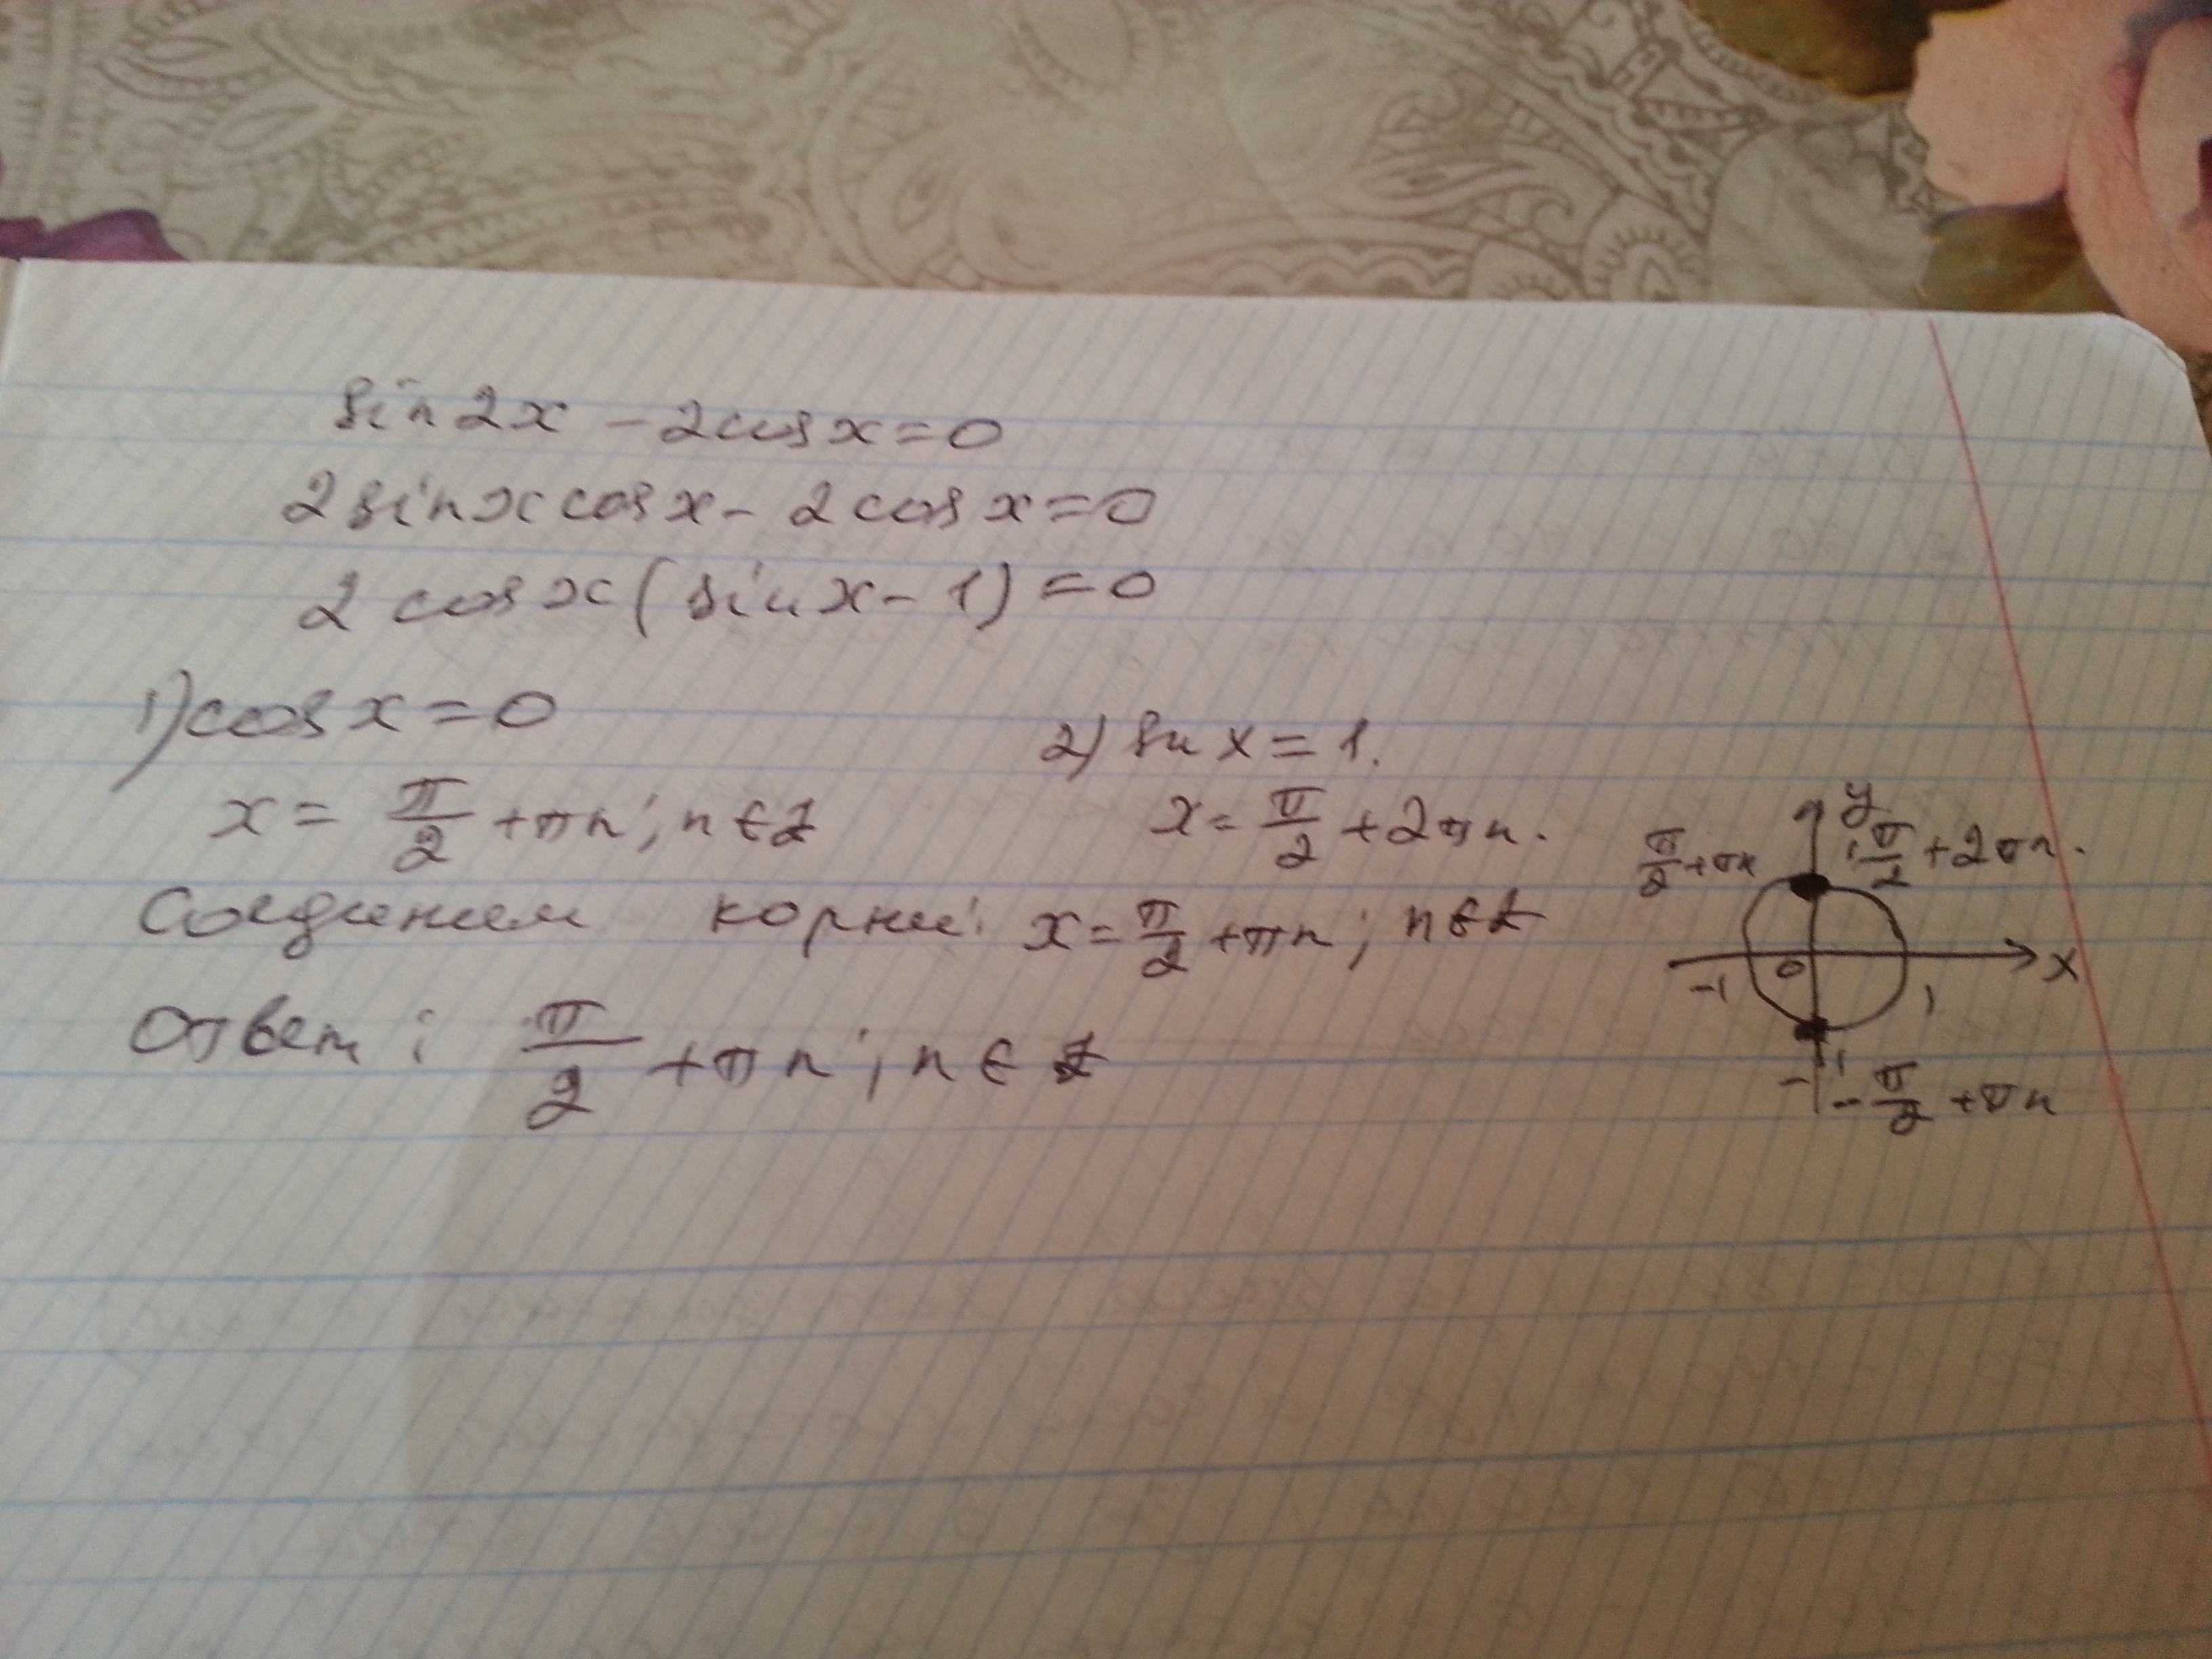 sin2x - 2cosx = 0
2sinx cosx - 2cosx = 0
2 cosx (sinx - 1) = 0
1) cosx = 0
2) sin x = 1.
x = π/2 + πn; n ∈ Z
x = π/2 + 2πn.
Соединим корни: x = π/2 + πn; n ∈ Z
Ответ: π/2 + πn; n ∈ Z
y
π/2 + πn
1 π/2 + 2πn.
-1 0 1 x
-1
-π/2 + πn